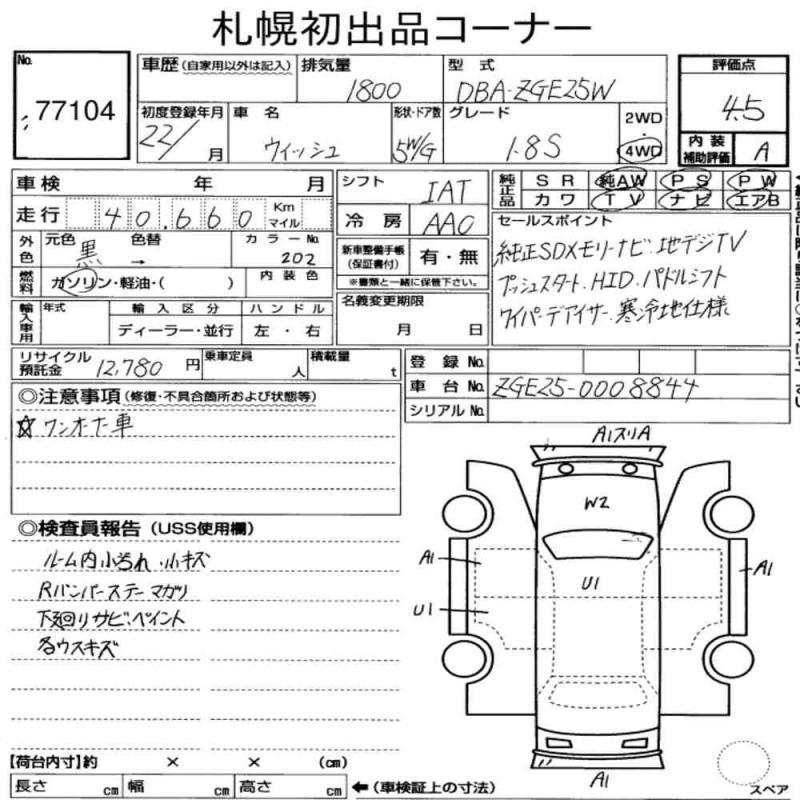 札幌初出品コーナー
No. 77104
車歴(自家用以外は記入) 排気量 1800 型式 DBA-ZGE25W 評価点 4.5
初度登録年月 22/ 月 車名 ウィッシュ 形状・ドア数 5W/G グレード 1.8S 2WD・4WD 内装補助評価 A
車検 年 月 シフト IAT 純正品 SR 純AW PS PW
カワ TV ナビ エアB
走行 40,660 Km マイル 冷房 AAC
外色 元色 黒 色替 → カラーNo. 202
新車整備手帳(保証書付) 有・無
※書類と一緒に保管下さい。
燃料 ガソリン・軽油・( ) 内装色
名義変更期限 月 日
セールスポイント
純正SDメモリーナビ.地デジTV
プッシュスタート.HID.パドルシフト
ワイパーデアイサー.寒冷地仕様
輸入車用 年式 輸入区分 ハンドル
ディーラー・並行 左・右
リサイクル預託金 12,780 円 乗車定員 人 積載量 t
登録No.
車台No. ZGE25-0008844
シリアルNo.
◎注意事項(修復・不具合箇所および状態等)
☆ワンオーナー車
◎検査員報告(USS使用欄)
ルーム内小汚れ.小キズ
Rバンパーステーマガリ
下廻りサビ、ペイント
各ウスキズ
A1スリA
W2
A1
U1
A1
U1
A1
スペア
【荷台内寸】約 × × (cm)
長さ cm 幅 cm 高さ cm ←(車検証上の寸法)